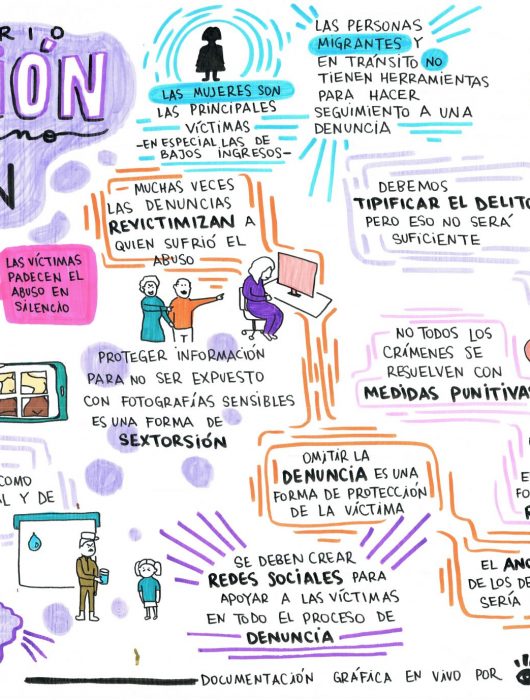 RIO
IÓN
no
N
LAS MUJERES SON
LAS PRINCIPALES
VÍCTIMAS
-EN ESPECIAL LAS DE
BAJOS INGRESOS-
LAS PERSONAS
MIGRANTES Y
EN TRÁNSITO NO
TIENEN HERRAMIENTAS
PARA HACER
SEGUIMIENTO A UNA
DENUNCIA
MUCHAS VECES
LAS DENUNCIAS
REVICTIMIZAN A
QUIEN SUFRIÓ EL
ABUSO
DEBEMOS
TIPIFICAR EL DELITO
PERO ESO NO SERÁ
SUFICIENTE
LAS VÍCTIMAS
PADECEN EL
ABUSO EN
SILENCIO
PROTEGER INFORMACIÓN
PARA NO SER EXPUESTO
CON FOTOGRAFÍAS SENSIBLES
ES UNA FORMA DE
SEXTORSIÓN
NO TODOS LOS
CRÍMENES SE
RESUELVEN CON
MEDIDAS PUNITIVAS
OMITIR LA
DENUNCIA ES UNA
FORMA DE PROTECCIÓN
DE LA VÍCTIMA
COMO
AL Y DE
E
FO
R
SE DEBEN CREAR
REDES SOCIALES PARA
APOYAR A LAS VÍCTIMAS
EN TODO EL PROCESO DE
DENUNCIA
EL AN
DE LOS DE
SERÍA
DOCUMENTACIÓN GRÁFICA EN VIVO POR